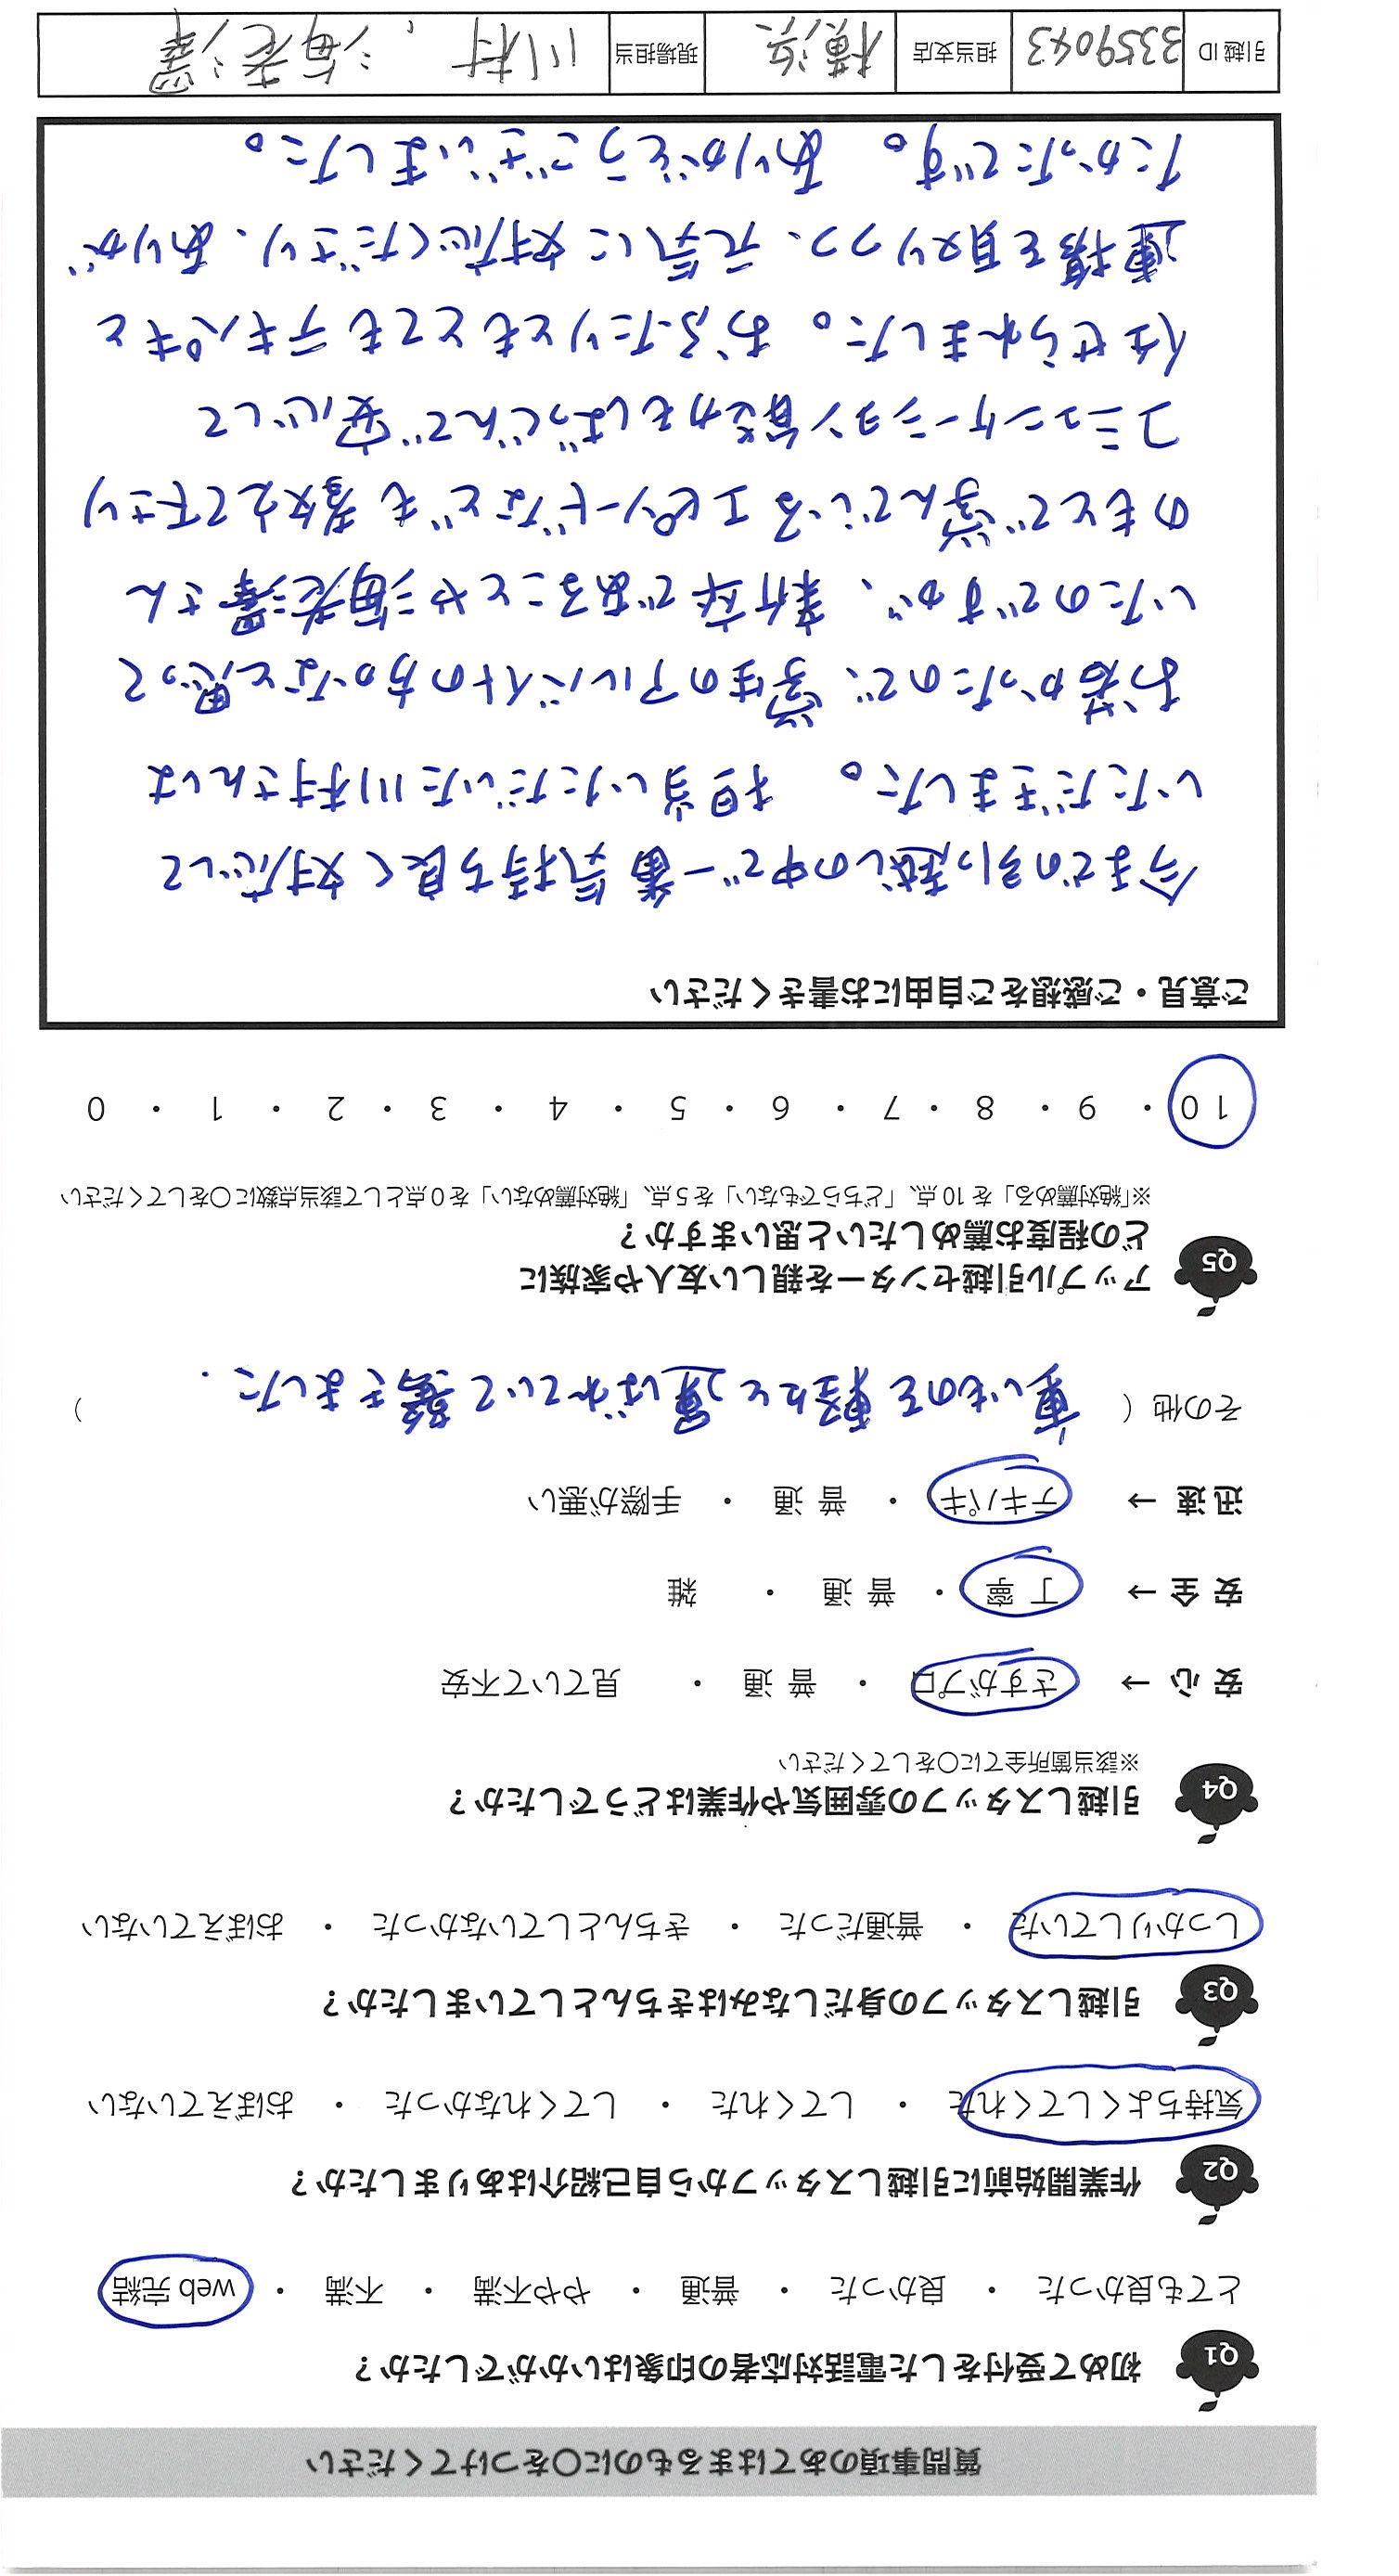 質問事項のあてはまるものに〇をつけてください
Q1 初めて受付をした電話対応者の印象はいかがでしたか？
とても良かった ・ 良かった ・ 普通 ・ やや不満 ・ 不満 ・ web 完結
Q2 作業開始前に引越しスタッフから自己紹介はありましたか？
気持ちよくしてくれた ・ してくれた ・ してくれなかった ・ おぼえていない
Q3 引越しスタッフの身だしなみはきちんとしていましたか？
しっかりしていた ・ 普通だった ・ きちんとしていなかった ・ おぼえていない
Q4 引越しスタッフの雰囲気や作業はどうでしたか？
※該当箇所全てに〇をしてください
安 心 → さすがプロ ・ 普 通 ・ 見ていて不安
安 全 → 丁 寧 ・ 普 通 ・ 雑
迅 速 → テキパキ ・ 普 通 ・ 手際が悪い
その他（ 重いものを軽々と運ばれていて驚きました. ）
Q5 アップル引越センターを親しい友人や家族に
どの程度お薦めしたいと思いますか？
※「絶対薦める」を 10 点、「どちらでもない」を 5 点、「絶対薦めない」を 0 点として該当点数に〇をしてください
10 ・ 9 ・ 8 ・ 7 ・ 6 ・ 5 ・ 4 ・ 3 ・ 2 ・ 1 ・ 0
ご意見・ご感想をご自由にお書きください
今までの引っ越しの中で一番気持ち良く対応して
いただきました。 担当いただいた川村さんは
お若かったので、学生のアルバイトの方かなと思って
いたのですが、新卒であることや海老澤さん
のもとで学んでいるエピソードなども教えて下さり
コミュニケーション能力もばつぐんで安心して
任せられました。おふたりともとてもテキパキと
運搬を頁又りつつ、元気に対応くださり、ありが
たかったです。 ありがとうございました。
引越 ID 3359043 担当支店 横浜 現場担当 川村、海老澤